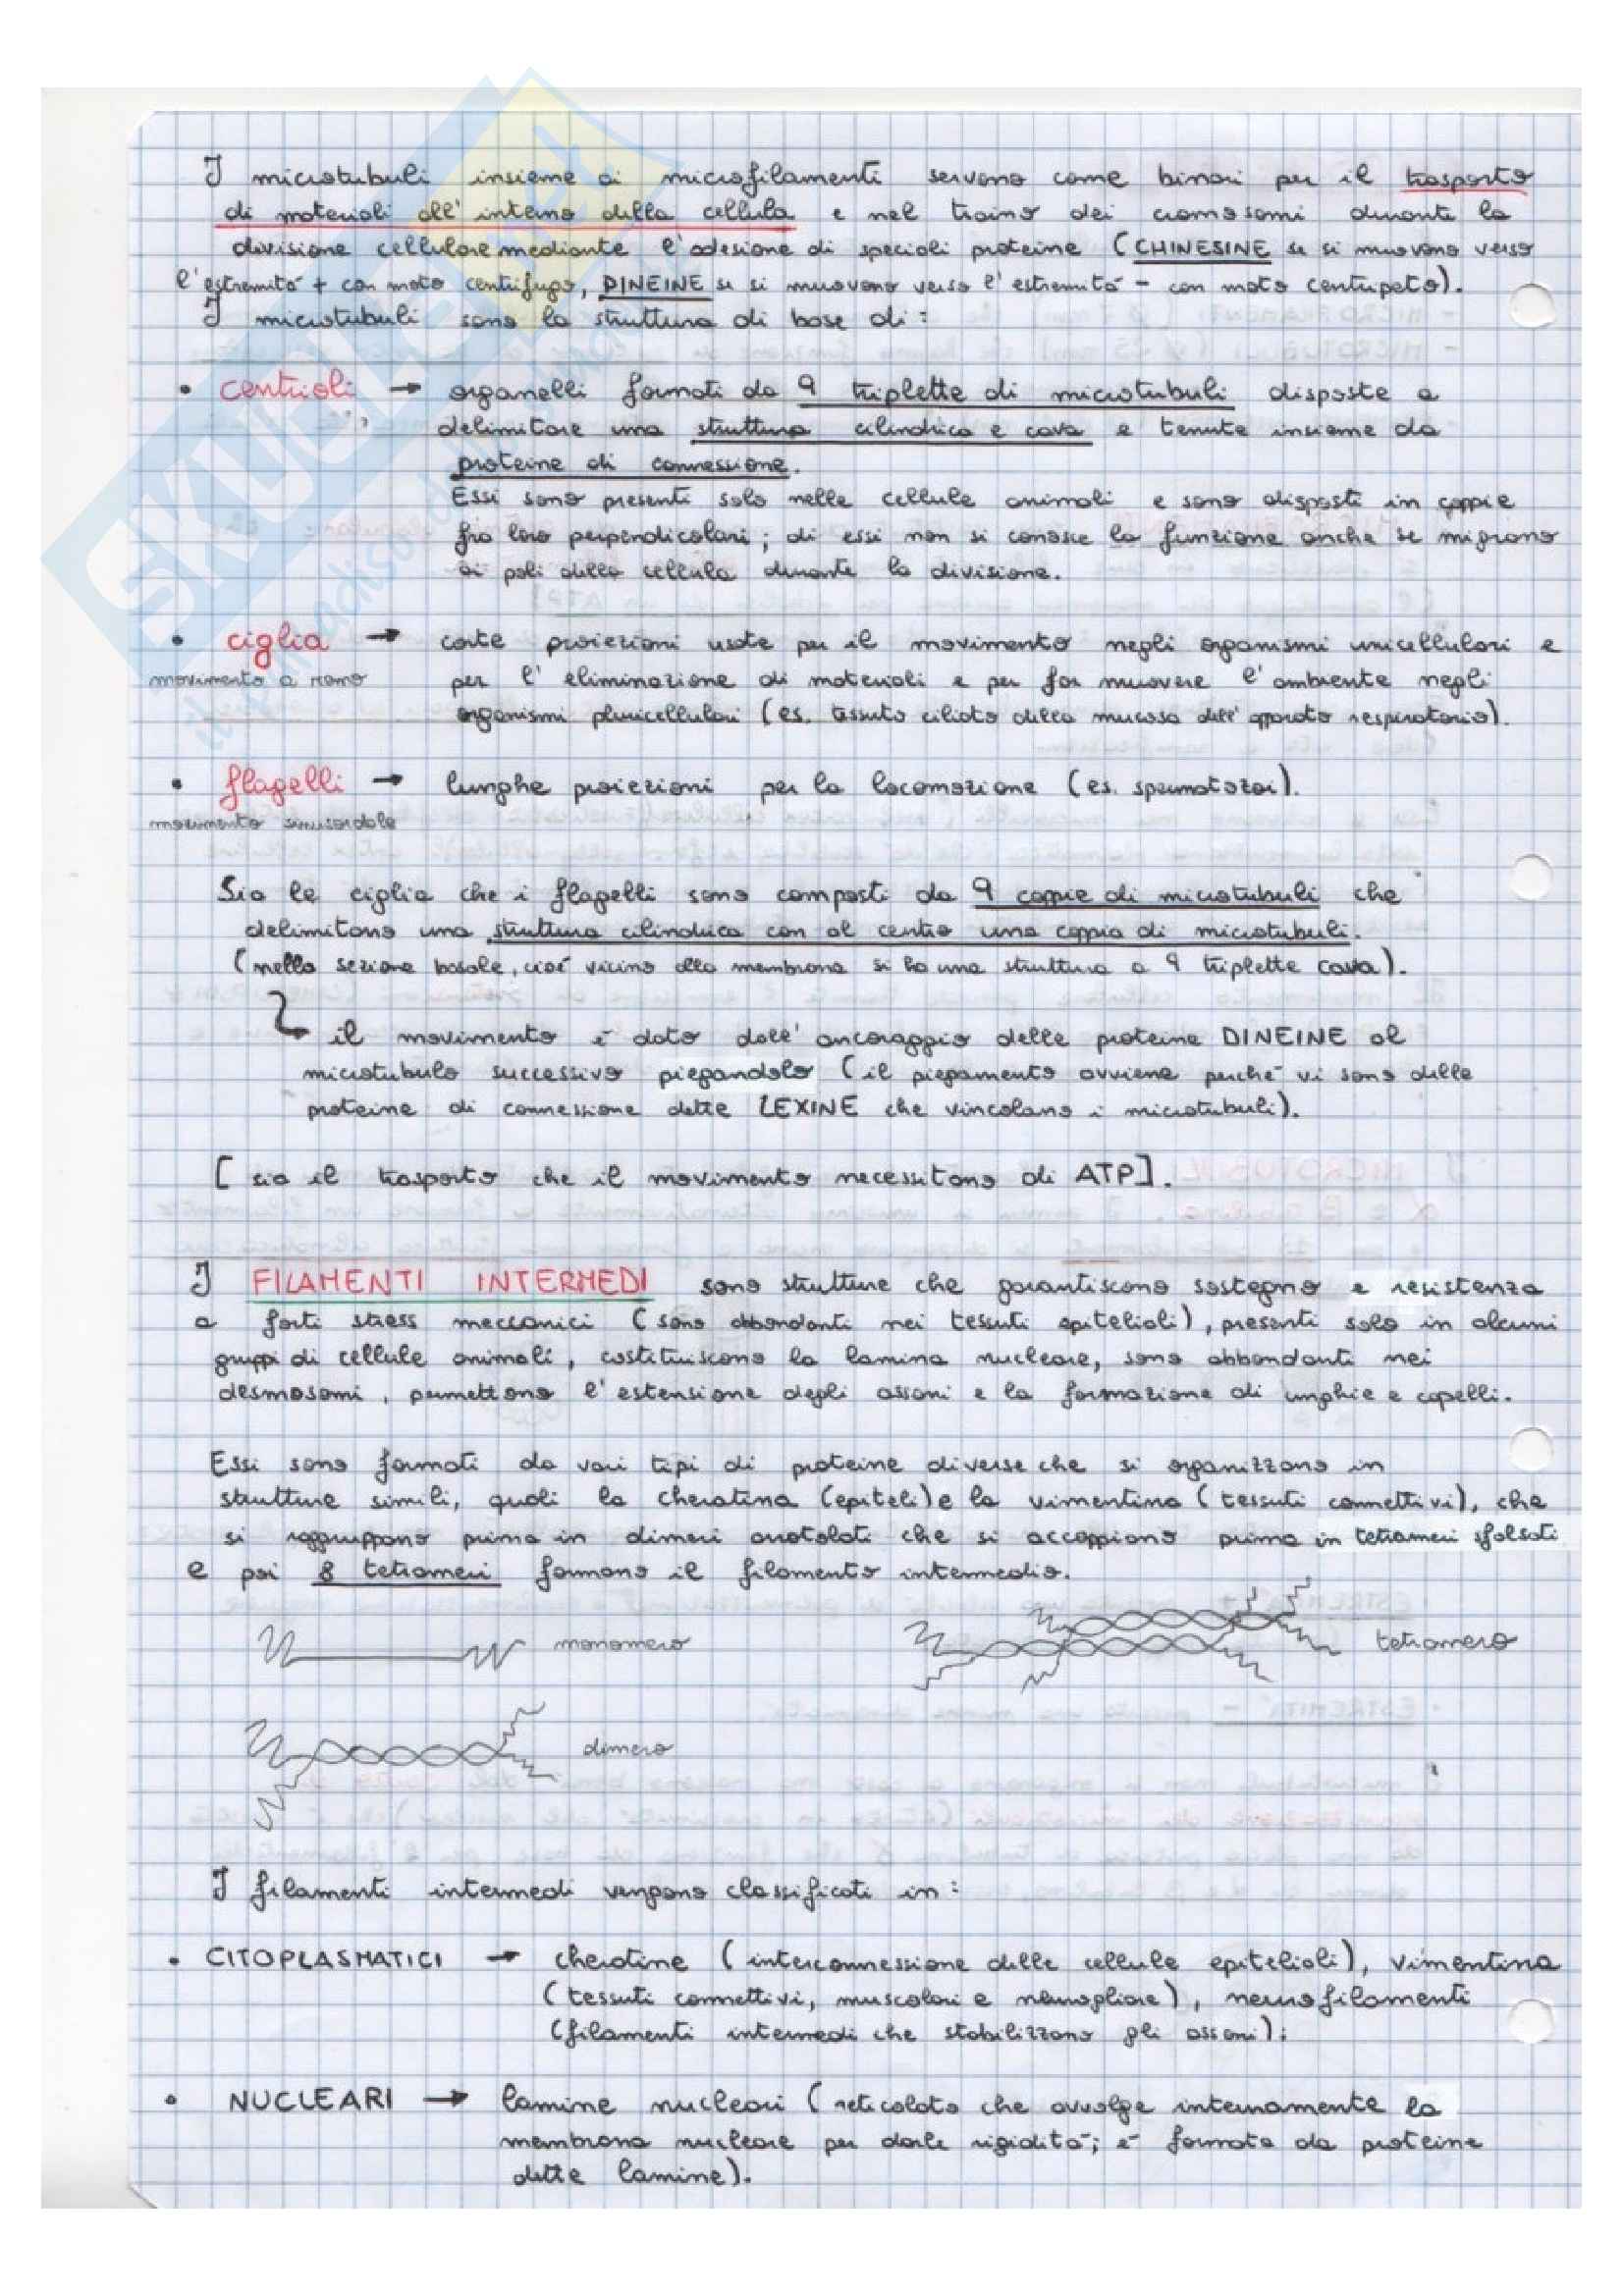 I microtubuli insieme ai microfilamenti servono come binari per il trasporto
di materiali all'interno della cellula e nel traino dei cromosomi durante la
divisione cellulare mediante l'adesione di speciali proteine (CHINESINE se si muovono verso
l'estremità + con moto centrifugo, DINEINE se si muovono verso l'estremità - con moto centripeto).
I microtubuli sono la struttura di base di:
• centrioli → organelli formati da 9 triplette di microtubuli disposte a
delimitare una struttura cilindrica e cava e tenute insieme da
proteine di connessione.
Essi sono presenti solo nelle cellule animali e sono disposti in coppie
fra loro perpendicolari; di essi non si conosce la funzione anche se migrano
ai poli della cellula durante la divisione.
• ciglia → corte proiezioni usate per il movimento negli organismi unicellulari e
movimento a remo per l'eliminazione di materiali e per far muovere l'ambiente negli
organismi pluricellulari (es. tessuto ciliato della mucosa dell'apparato respiratorio).
• flagelli → lunghe proiezioni per la locomozione (es. spermatozoi).
movimento sinusoidale
Sia le ciglia che i flagelli sono composti da 9 coppie di microtubuli che
delimitano una struttura cilindrica con al centro una coppia di microtubuli.
(nella sezione basale, cioè vicino alla membrana si ha una struttura a 9 triplette cava).
il movimento è dato dall'ancoraggio delle proteine DINEINE al
microtubulo successivo piegandolo (il piegamento avviene perché vi sono delle
proteine di connessione dette LEXINE che vincolano i microtubuli).
[sia il trasporto che il movimento necessitano di ATP].
I FILAMENTI INTERMEDI sono strutture che garantiscono sostegno e resistenza
a forti stress meccanici (sono abbondanti nei tessuti epiteliali), presenti solo in alcuni
gruppi di cellule animali, costituiscono la lamina nucleare, sono abbondanti nei
desmosomi, permettono l'estensione degli assoni e la formazione di unghie e capelli.
Essi sono formati da vari tipi di proteine diverse che si organizzano in
strutture simili, quali la cheratina (epiteli) e la vimentina (tessuti connettivi), che
si raggruppano prima in dimeri arotolati che si accoppiano prima in tetrameri sfalsati
e poi 8 tetrameri formano il filamento intermedio.
monomero tetramero
dimero
I filamenti intermedi vengono classificati in:
• CITOPLASMATICI → cheratine (interconnessione delle cellule epiteliali), vimentina
(tessuti connettivi, muscolari e neurogliare), neurofilamenti
(filamenti intermedi che stabilizzano gli assoni);
• NUCLEARI → lamine nucleari (reticolato che avvolge internamente la
membrana nucleare per darle rigidità; è formata da proteine
dette lamine).